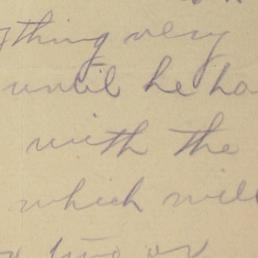 thing very
until he ha
with the
which will
two or